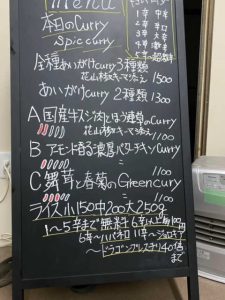 menu
本日のcurry
spic curry
1辛
2辛
3辛
4辛
5辛
全種あいがけcurry 3種類
花山椒キーマ添え 1500
あいがけcurry 2種類 1300
A 国産牛スジ肉とほうれん草のcurry
花山椒キーマ添え 1100
B アーモンド香る濃厚バターチキンcurry
1100
C 舞茸と春菊のGreen curry
1100
ライス小150中200大250g
1〜5辛まで無料 6辛以上 100円
6辛〜ハバネロ 11辛〜ジョロキア
〜ドラゴンブレスチリ 40倍
まで